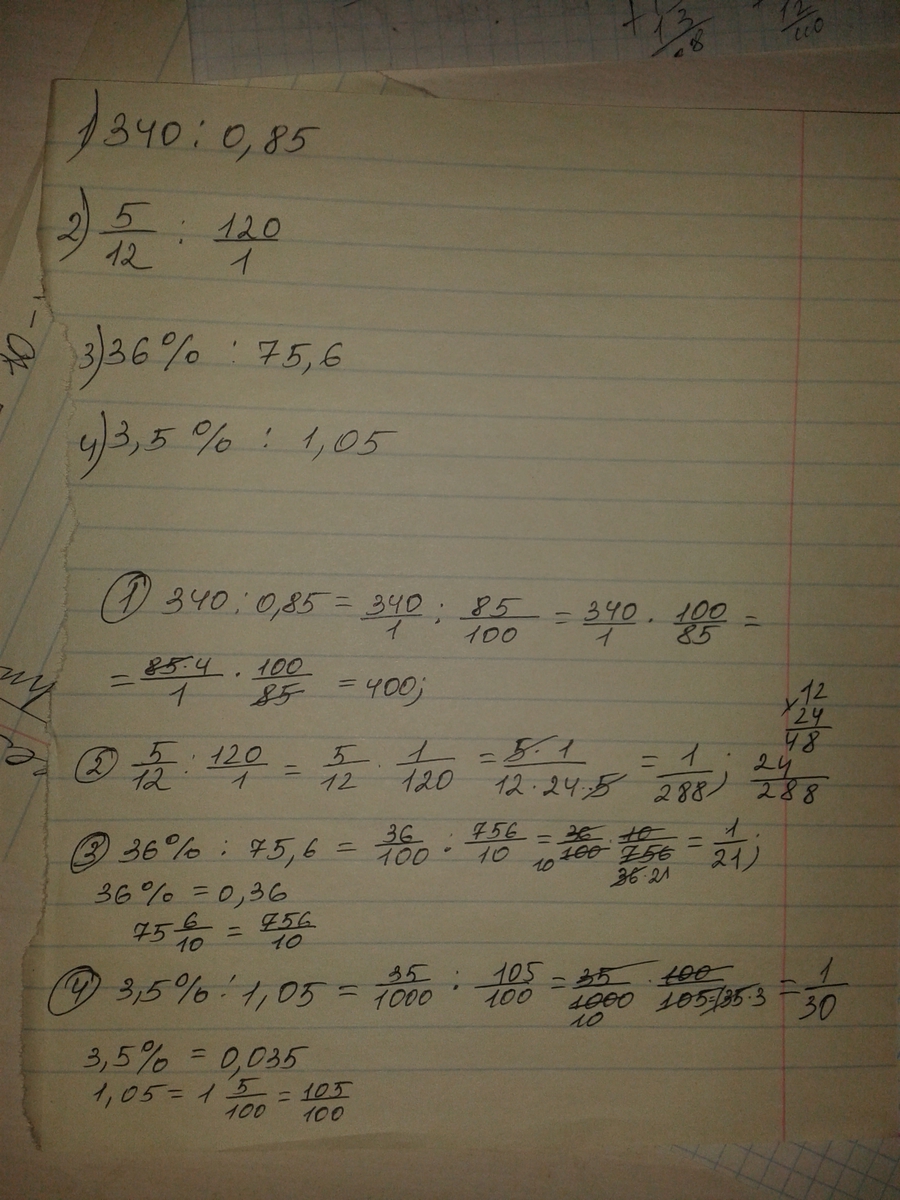 13/48 12/40
1) 340 : 0,85
2) 5/12 : 120/1
3) 36% : 75,6
4) 3,5% : 1,05
① 340 : 0,85 = 340/1 : 85/100 = 340/1 · 100/85 =
= 85·4/1 · 100/85 = 400;
② 5/12 : 120/1 = 5/12 · 1/120 = 5·1/12·24·5 = 1/288;
× 12
24
48
24
288
③ 36% : 75,6 = 36/100 : 756/10 = 36/100 10 · 10/756 36·21 = 1/21;
36% = 0,36
75 6/10 = 756/10
④ 3,5% : 1,05 = 35/1000 : 105/100 = 35/1000 10 · 100/105=35·3 = 1/30
3,5% = 0,035
1,05 = 1 5/100 = 105/100